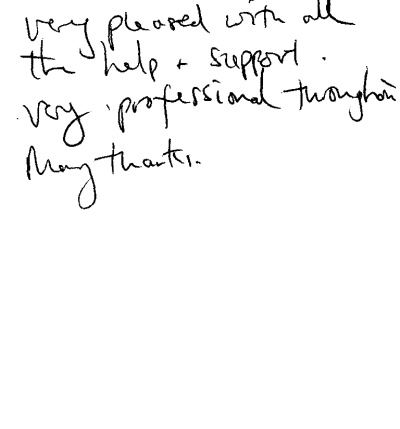 very pleased with all
the help + support.
very professional throughout
Many thanks.